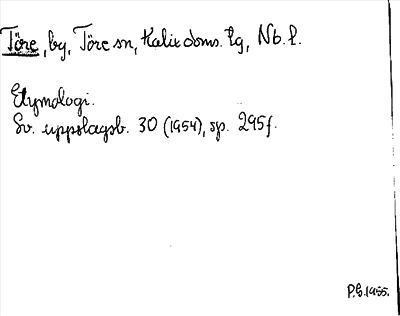 Töre, by, Töre sn, Kalix doms. lg, Nb. l.
Etymologi.
Sv. uppslagsb. 30 (1954), sp. 295f.
P.G.1955.